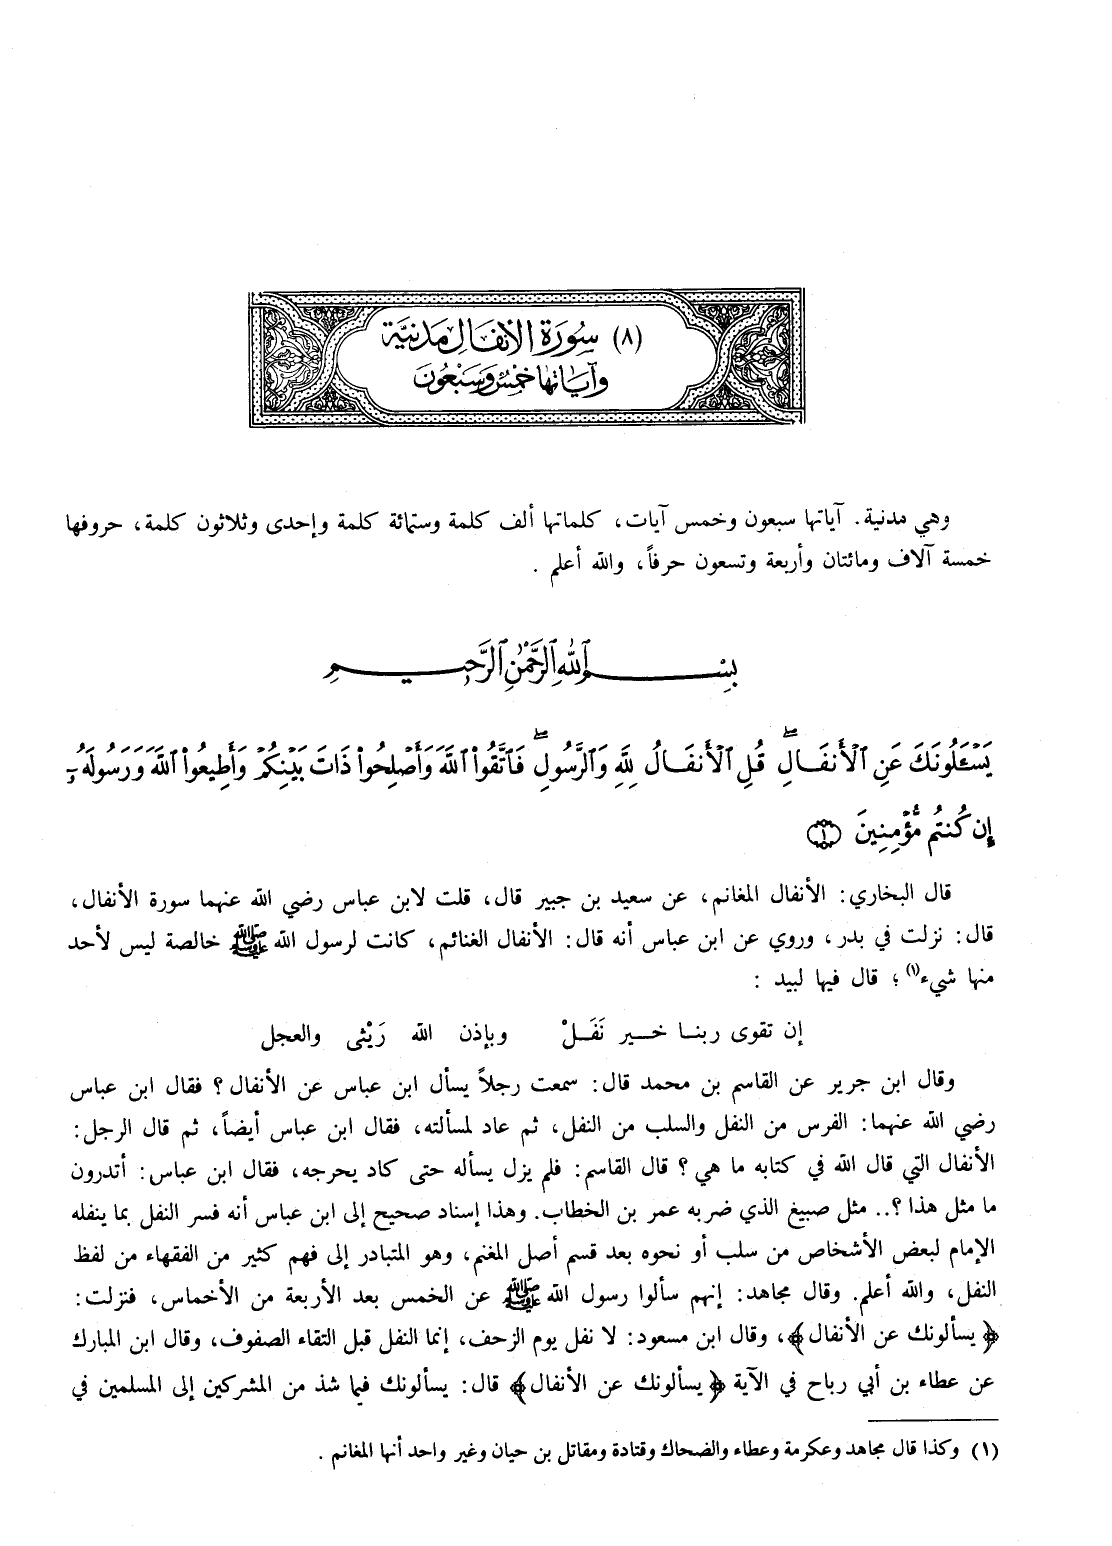 (٨) سُورَة الأَنفَال مَدَنيَّة
وَآيَاتهَا خَمْسٌ وَسَبْعُونَ
وهي مدنية. آياتها سبعون وخمس آيات، كلماتها ألف كلمة وستمائة كلمة وإحدى وثلاثون كلمة، حروفها
خمسة آلاف ومائتان وأربعة وتسعون حرفاً، والله أعلم .
بِسْمِ ٱللَّهِ ٱلرَّحْمَٰنِ ٱلرَّحِيمِ
يَسْـَٔلُونَكَ عَنِ ٱلْأَنفَالِ ۖ قُلِ ٱلْأَنفَالُ لِلَّهِ وَٱلرَّسُولِ ۖ فَٱتَّقُوا۟ ٱللَّهَ وَأَصْلِحُوا۟ ذَاتَ بَيْنِكُمْ وَأَطِيعُوا۟ ٱللَّهَ وَرَسُولَهُۥٓ
إِن كُنتُم مُّؤْمِنِينَ ﴿١﴾
قال البخاري: الأنفال المغانم، عن سعيد بن جبير قال، قلت لابن عباس رضي الله عنهما سورة الأنفال،
قال: نزلت في بدر، وروي عن ابن عباس أنه قال: الأنفال الغنائم، كانت لرسول الله ﷺ خالصة ليس لأحد
منها شيء(١)؛ قال فيها لبيد :
إن تقوى ربنا خير نَفَلْ وبإذن الله رَيْثى والعجل
وقال ابن جرير عن القاسم بن محمد قال: سمعت رجلاً يسأل ابن عباس عن الأنفال؟ فقال ابن عباس
رضي الله عنهما: الفرس من النفل والسلب من النفل، ثم عاد لمسألته، فقال ابن عباس أيضاً، ثم قال الرجل:
الأنفال التي قال الله في كتابه ما هي؟ قال القاسم: فلم يزل يسأله حتى كاد يحرجه، فقال ابن عباس: أتدرون
ما مثل هذا؟.. مثل صبيغ الذي ضربه عمر بن الخطاب. وهذا إسناد صحيح إلى ابن عباس أنه فسر النفل بما ينفله
الإمام لبعض الأشخاص من سلب أو نحوه بعد قسم أصل المغنم، وهو المتبادر إلى فهم كثير من الفقهاء من لفظ
النفل، والله أعلم. وقال مجاهد: إنهم سألوا رسول الله ﷺ عن الخمس بعد الأربعة من الأخماس، فنزلت:
﴿يسألونك عن الأنفال﴾، وقال ابن مسعود: لا نفل يوم الزحف، إنما النفل قبل التقاء الصفوف، وقال ابن المبارك
عن عطاء بن أبي رباح في الآية ﴿يسألونك عن الأنفال﴾ قال: يسألونك فيما شذ من المشركين إلى المسلمين في
(١) وكذا قال مجاهد وعكرمة وعطاء والضحاك وقتادة ومقاتل بن حيان وغير واحد أنها المغانم .